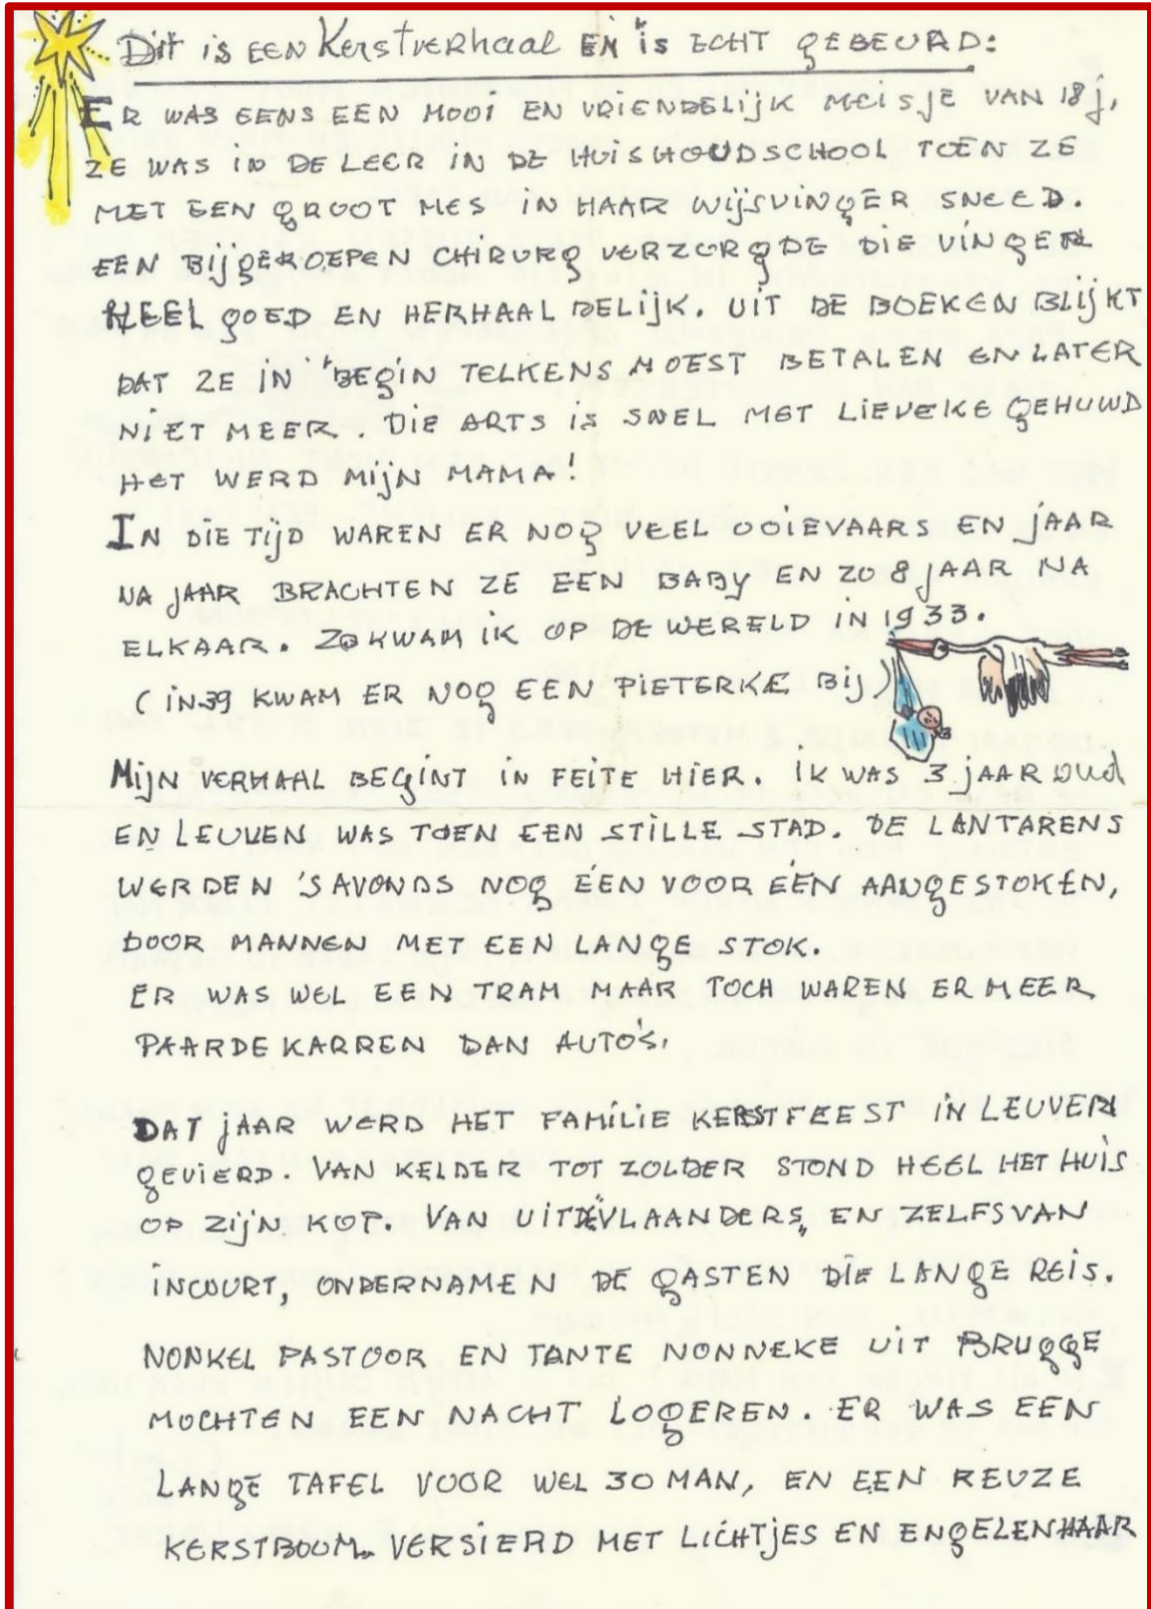 Dit is EEN Kerstverhaal EN is ECHT GEBEURD:
ER WAS EENS EEN MOOI EN VRIENDELIJK MEISJE VAN 18 j,
ZE WAS IN DE LEER IN DE HUISHOUDSCHOOL TOEN ZE
MET EEN GROOT MES IN HAAR WIJSVINGER SNEED.
EEN BIJGEROEPEN CHIRURG VERZORGDE DIE VINGER
HEEL GOED EN HERHAALDELIJK. UIT DE BOEKEN BLIJKT
DAT ZE IN 'T BEGIN TELKENS MOEST BETALEN EN LATER
NIET MEER. DIE ARTS IS SNEL MET LIEVEKE GEHUWD
HET WERD MIJN MAMA!
IN DIE TIJD WAREN ER NOG VEEL OOIEVAARS EN JAAR
NA JAAR BRACHTEN ZE EEN BABY EN ZO 8 JAAR NA
ELKAAR. ZO KWAM IK OP DE WERELD IN 1933.
(IN 39 KWAM ER NOG EEN PIETERKE BIJ)
MIJN VERHAAL BEGINT IN FEITE HIER. IK WAS 3 JAAR OUD
EN LEUVEN WAS TOEN EEN STILLE STAD. DE LANTARENS
WERDEN 'S AVONDS NOG ÉÉN VOOR ÉÉN AANGESTOKEN,
DOOR MANNEN MET EEN LANGE STOK.
ER WAS WEL EEN TRAM MAAR TOCH WAREN ER MEER
PAARDEKARREN DAN AUTO'S.
DAT JAAR WERD HET FAMILIE KERSTFEEST IN LEUVEN
GEVIERD. VAN KELDER TOT ZOLDER STOND HEEL HET HUIS
OP ZIJN KOP. VAN UIT DE "VLAANDERS" EN ZELFS VAN
INCOURT, ONDERNAMEN DE GASTEN DIE LANGE REIS.
NONKEL PASTOOR EN TANTE NONNEKE UIT BRUGGE
MOCHTEN EEN NACHT LOGEREN. ER WAS EEN
LANGE TAFEL VOOR WEL 30 MAN, EN EEN REUZE
KERSTBOOM VERSIERD MET LICHTJES EN ENGELENHAAR